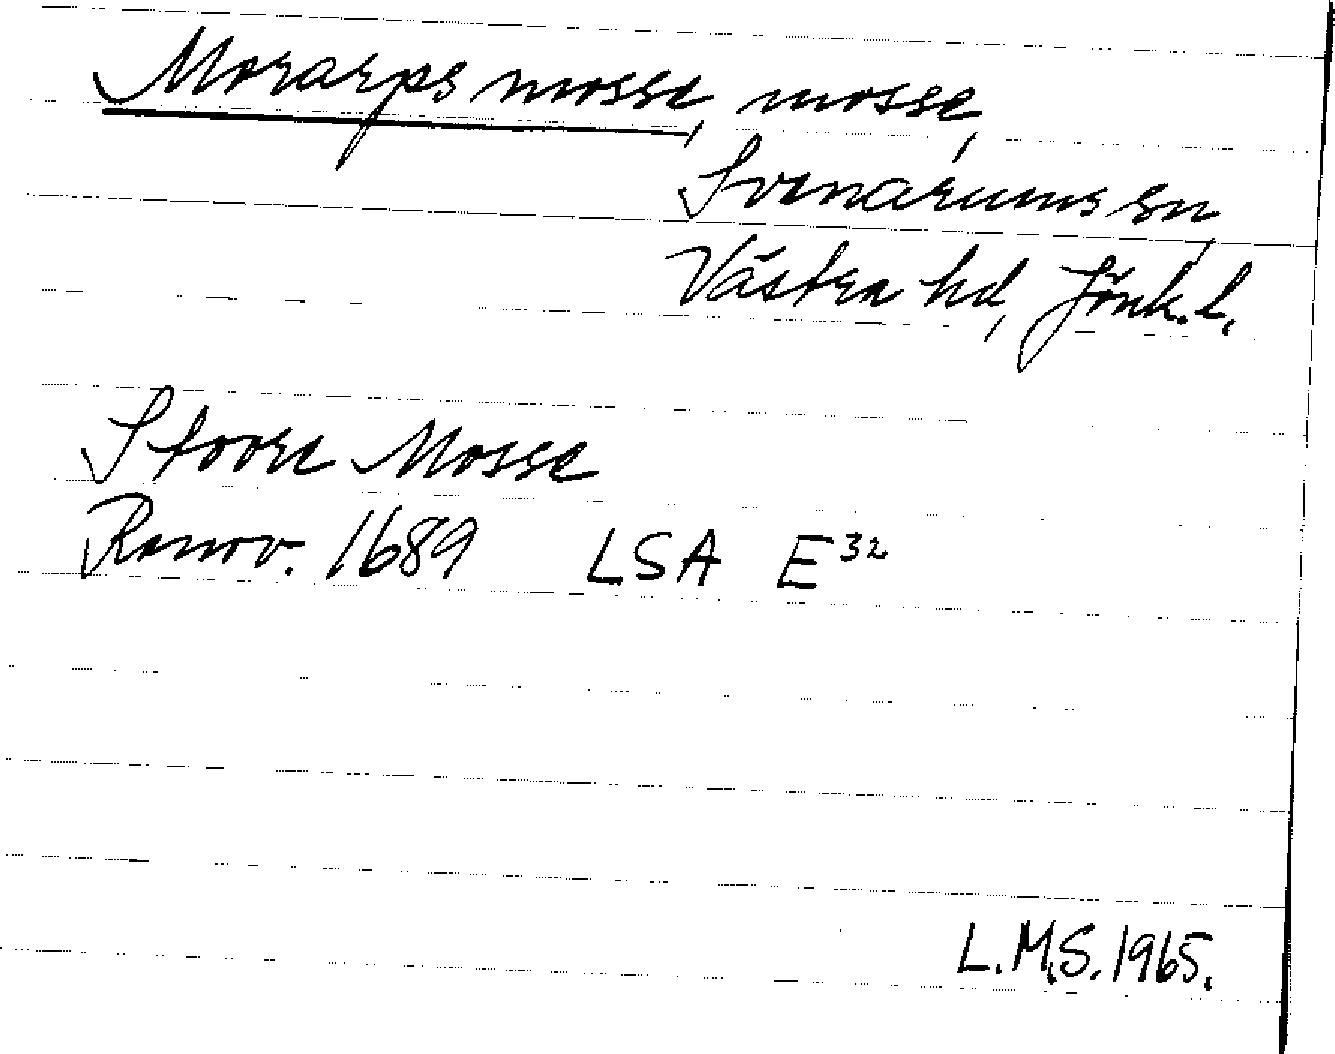 Morarps mosse, mosse,
Svenarums sn,
Västra hd, Jönk. l.
Stoore Mosse
Renov. 1689 LSA E32
L.M.S. 1965.